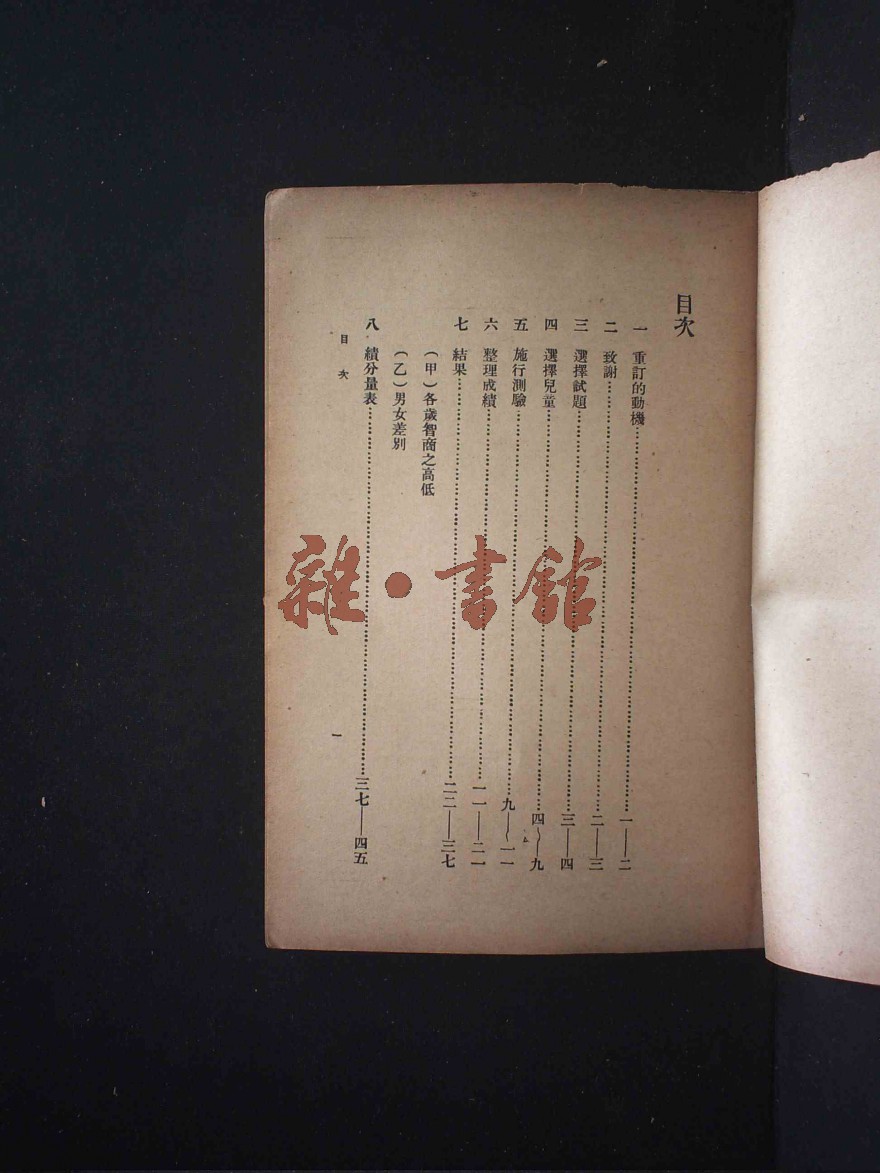 目次
一 重訂的動機……一——二
二 致謝……二——三
三 選擇試題……三——四
四 選擇兒童……四～九
五 施行測驗……九——一一
六 整理成績……一一——二一
七 結果……二二——三七
(甲)各歲智商之高低
(乙)男女差別
八 績分量表……三七——四五
目次 一
雜·書館